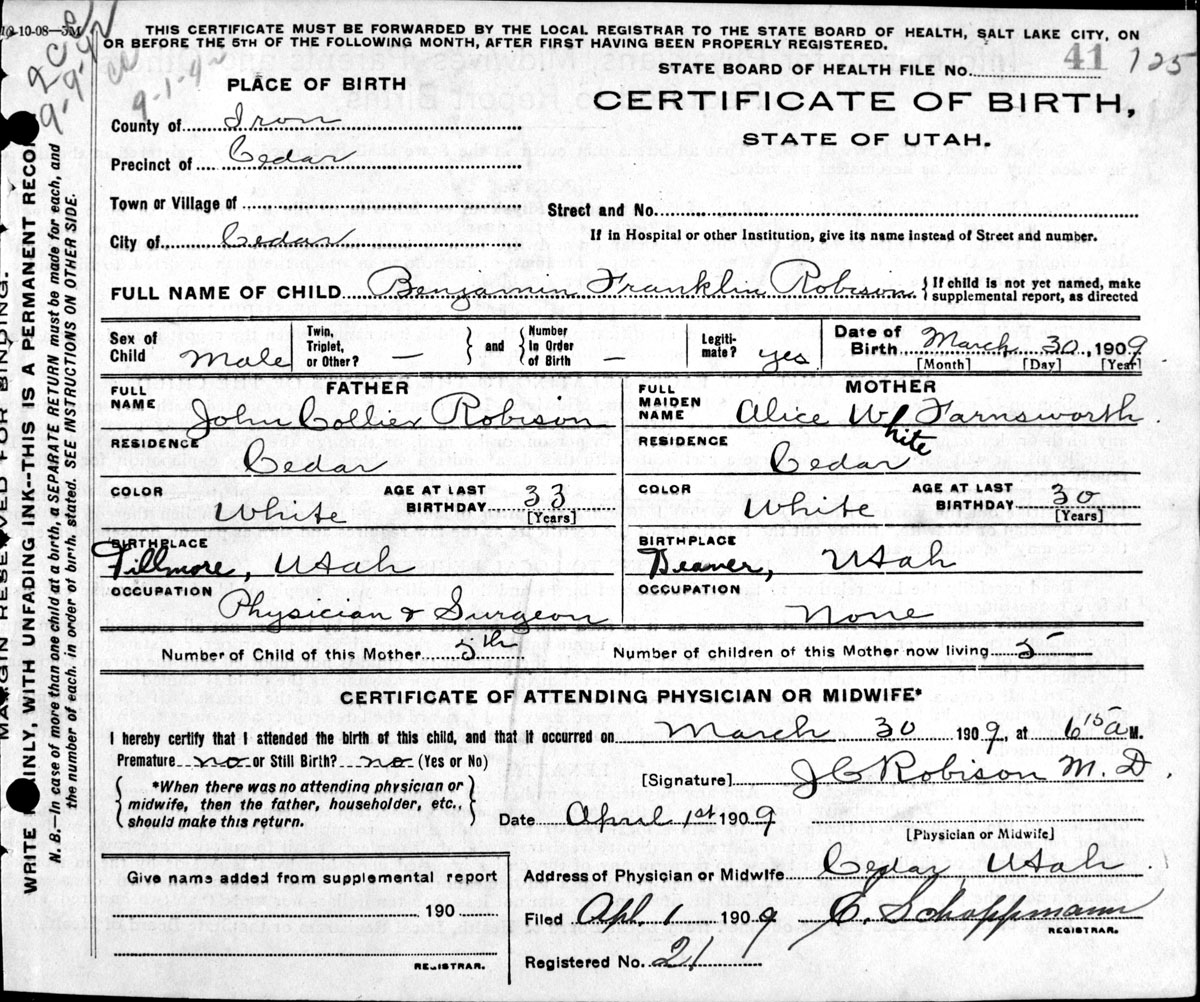 10-10-08—5M
THIS CERTIFICATE MUST BE FORWARDED BY THE LOCAL REGISTRAR TO THE STATE BOARD OF HEALTH, SALT LAKE CITY, ON
OR BEFORE THE 5TH OF THE FOLLOWING MONTH, AFTER FIRST HAVING BEEN PROPERLY REGISTERED.
9-1-42
STATE BOARD OF HEALTH FILE No. 41 125
PLACE OF BIRTH
CERTIFICATE OF BIRTH,
STATE OF UTAH.
County of Iron
Precinct of Cedar
Town or Village of
Street and No.
City of Cedar
If in Hospital or other Institution, give its name instead of Street and number.
FULL NAME OF CHILD Benjamin Franklin Robison { If child is not yet named, make
supplemental report, as directed
Sex of Child Male Twin, Triplet, or Other? — } and { Number In Order of Birth — Legitimate? yes Date of Birth March 30, 1909
[Month] [Day] [Year]
FATHER MOTHER
FULL NAME John Collier Robison FULL MAIDEN NAME Alice White Farnsworth
RESIDENCE Cedar RESIDENCE Cedar
COLOR White AGE AT LAST BIRTHDAY 33 [Years] COLOR White AGE AT LAST BIRTHDAY 30 [Years]
BIRTHPLACE Fillmore, Utah BIRTHPLACE Beaver, Utah
OCCUPATION Physician & Surgeon OCCUPATION None
Number of Child of this Mother 5th Number of children of this Mother now living 5
CERTIFICATE OF ATTENDING PHYSICIAN OR MIDWIFE*
I hereby certify that I attended the birth of this child, and that it occurred on March 30 1909, at 6 15 a M.
Premature no or Still Birth? no (Yes or No)
[Signature] J C Robison M. D.
{ *When there was no attending physician or
midwife, then the father, householder, etc.,
should make this return. }
Date April 1st 1909
[Physician or Midwife]
Give name added from supplemental report
Address of Physician or Midwife Cedar Utah
190
Filed Apl. 1 1909 C. Schoppmann
REGISTRAR.
REGISTRAR.
Registered No. 21
MARGIN RESERVED FOR BINDING.
WRITE PLAINLY, WITH UNFADING INK--THIS IS A PERMANENT RECORD
N. B.—In case of more than one child at a birth, a SEPARATE RETURN must be made for each, and
the number of each, in order of birth, stated. SEE INSTRUCTIONS ON OTHER SIDE.